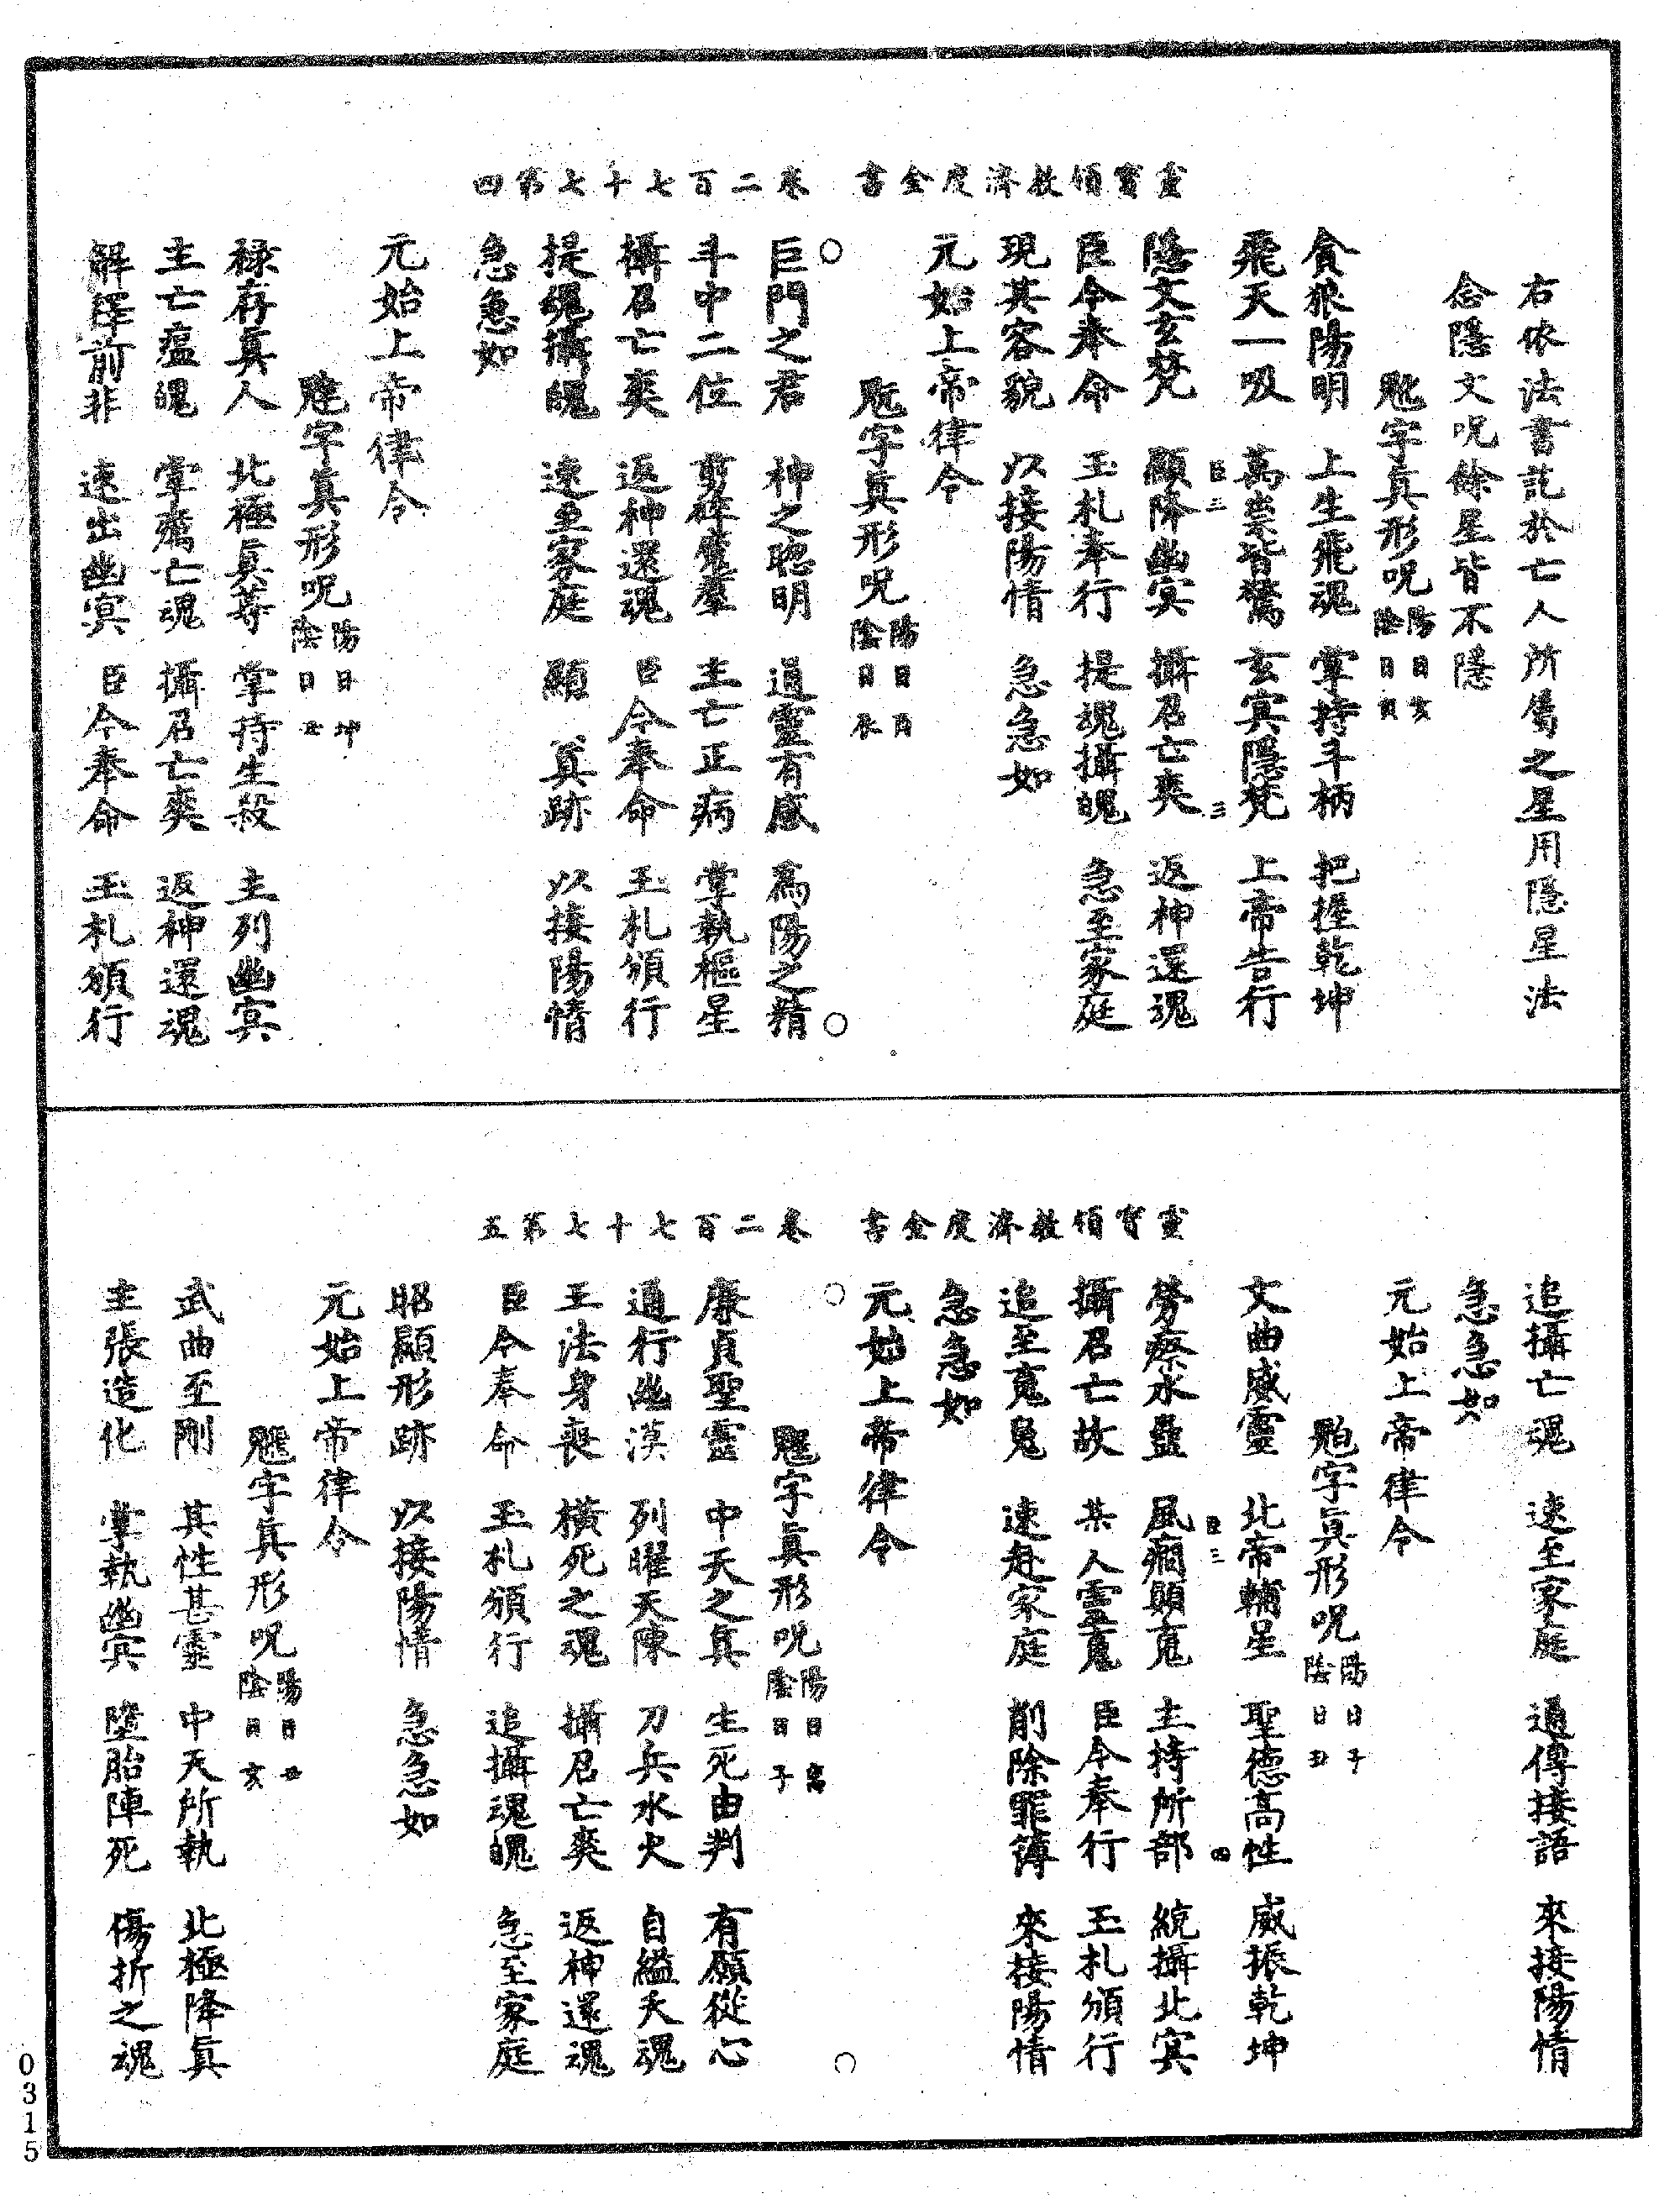 靈寶領教濟度金書 卷二百七十七第四
右依法書訖於亡人所属之星用隱星法
念隱文呪餘星皆不隱
魁字真形呪陽日亥陰日寅
貪狼陽明 上生飛魂 掌持斗柄 把握乾坤
飛天一吸 萬祟皆驚 玄冥隱梵 上帝告行
臣三 三
隂文玄梵 顯降幽冥 攝召亡爽 返神還魂
臣今奉命 玉札奉行 提魂攝魄 急至家庭
現其容貌 以接陽情 急急如
元始上帝律令
字真形呪陽日酉陰日辰
巨門之君 神之聰明 通靈有感 爲陽之精
斗中二位 剪碎鬼羣 主亡正病 掌執樞星
攝召亡爽 返神還魂 臣今奉命 玉札頒行
提魂攝魄 速至家庭 顯其跡 以接陽情
急急如
元始上帝律令
字真形呪陽日坤陰日
祿存真人 北極真尊 掌持生殺 主列幽冥
主亡瘟魄 掌癘亡魂 攝召亡爽 返神還魂
解釋前非 速出幽冥 臣今奉命 玉札頒行
靈寶領教濟度金書 卷二百七十七第五
追攝亡魂 速至家庭 通傳接語 來接陽情
急急如
元始上帝律令
字真形呪陽日子陰日丑
文曲威靈 北帝輔星 聖德高性 威振乾坤
臣三 四
勞瘵水蠱 風癇顯䰟 主持所部 統攝北冥
攝召亡故 某人靈䰟 臣今奉行 玉札頒行
追至䰟 速赴家庭 削除罪簿 來接陽情
急急如
元始上帝律令
字真形呪陽日 陰日子
廉貞聖靈 中天之真 生死由判 有願從心
通行幽漠 列曜天陳 刀兵水火 自縊夭魂
王法身喪 橫死之魂 攝召亡爽 返神還魂
臣今奉命 玉札頒行 追攝魂魄 急至家庭
昭顯形跡 以接陽情 急急如
元始上帝律令
字真形呪陽日 陰日亥
武曲至剛 其性甚靈 中天所執 北極降真
主張造化 掌執幽冥 墮胎陣死 傷折之魂
0315